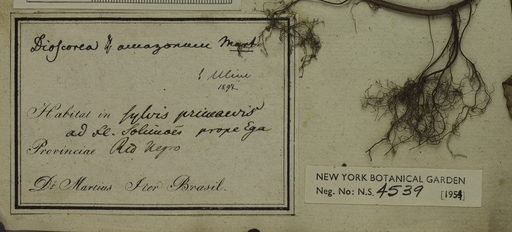 Dioscorea amazonum Mart.
Uline
189
Habitat in sylvis primaevis
ad fl. Solimoës prope Ega
Provinciae Rio Negro
Dr. Martius Iter Brasil.
NEW YORK BOTANICAL GARDEN
Neg. No: N.S. 4539 [1954]